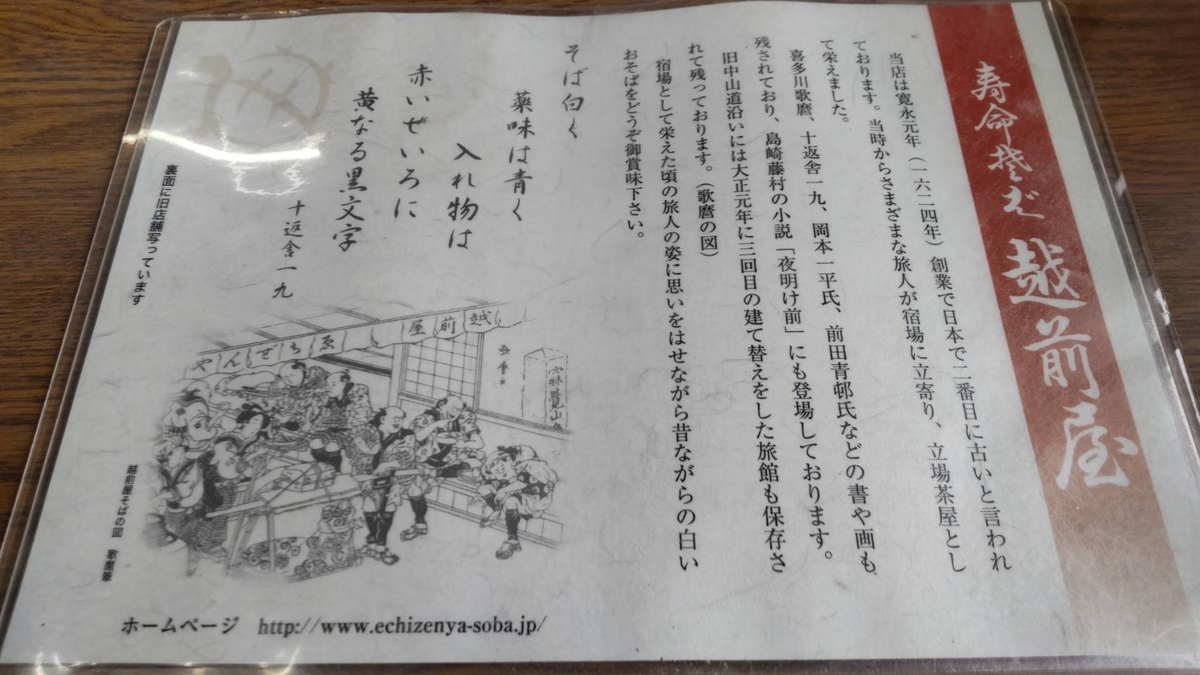 寿命そば 越前屋
当店は寛永元年(一六二四年)創業で日本で二番目に古いと言われ
ております。当時からさまざまな旅人が宿場に立寄り、立場茶屋とし
て栄えました。
喜多川歌麿、十返舎一九、岡本一平氏、前田青邨氏などの書や画も
残されており、島崎藤村の小説「夜明け前」にも登場しております。
旧中山道沿いには大正元年に三回目の建て替えをした旅館も保存さ
れて残っております。(歌麿の図)
宿場として栄えた頃の旅人の姿に思いをはせながら昔ながらの白い
おそばをどうぞ御賞味下さい。
そば白く
薬味は青く
入れ物は
赤いせいろに
黄なる黒文字
十返舎一九
裏面に旧店舗写っています
越前屋
ゑちぜんや
越前屋そばの図 歌麿筆
ホームページ http://www.echizenya-soba.jp/